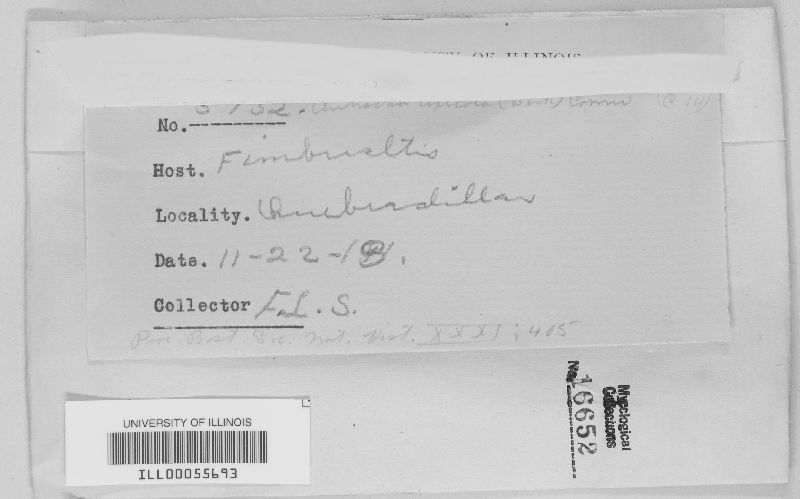 UNIVERSITY OF ILLINOIS
No. 5732.
Host. Fimbrisltis
Locality. Quebradillas
Date. 11-22-13.
Collector F.L.S.
Proc. Bost. Soc. Nat. Hist. XXXI; 405
UNIVERSITY OF ILLINOIS
ILL00055693
Mycological
Collections
No. 16652